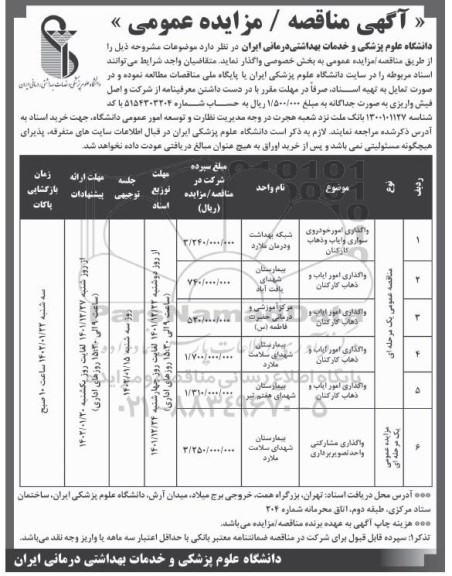 « آگهی مناقصه / مزایده عمومی »
دانشگاه علوم پزشکی و خدمات بهداشتی‌درمانی ایران در نظر دارد موضوعات مشروحه ذیل را
از طریق مناقصه/مزایده عمومی به بخش خصوصی واگذار نماید. متقاضیان واجد شرایط می‌توانند
اسناد مربوطه را در سایت دانشگاه علوم پزشکی ایران یا پایگاه ملی مناقصات مطالعه نموده و در
صورت تمایل به تهیه اسناد، صرفاً در مهلت مقرر با در دست داشتن معرفینامه از شرکت و اصل
فیش واریزی به صورت جداگانه به مبلغ ۱/۵۰۰/۰۰۰ ریال به حساب شماره ۵۱۵۴۳۰۳۲۰۴ با کد
شناسه ۱۳۰۰۱۰۱۱۲۷ بانک ملت نزد شعبه هجرت در وجه مدیریت نظارت و توسعه امور عمومی دانشگاه، جهت خرید اسناد به
آدرس ذکرشده مراجعه نمایند. لازم به ذکر است دانشگاه علوم پزشکی ایران در قبال اطلاعات سایت های متفرقه، پذیرای
هیچگونه مسئولیتی نمی باشد و پس از خرید اوراق به هیچ عنوان مبالغ دریافتی عودت داده نخواهد شد.
ردیف
نوع
موضوع
نام واحد
مبلغ سپرده شرکت در مناقصه/مزایده (ریال)
مهلت توزیع اسناد
جلسه توجیهی
مهلت ارائه پیشنهادات
زمان بازگشایی پاکات
مناقصه عمومی یک مرحله ای
۱ واگذاری امور خودروی سواری و ایاب و ذهاب کارکنان شبکه بهداشت و درمان ملارد ۳/۲۴۰/۰۰۰/۰۰۰
۲ واگذاری امور ایاب و ذهاب کارکنان بیمارستان شهدای یافت آباد ۷۴۰/۰۰۰/۰۰۰
۳ واگذاری امور ایاب و ذهاب کارکنان مرکز آموزشی و درمانی حضرت فاطمه (س) ۵۲۰/۰۰۰/۰۰۰
۴ واگذاری امور ایاب و ذهاب کارکنان بیمارستان شهدای سلامت ملارد ۱/۷۰۰/۰۰۰/۰۰۰
۵ واگذاری امور ایاب و ذهاب کارکنان بیمارستان شهدای هفتم تیر ۱/۳۱۰/۰۰۰/۰۰۰
مزایده عمومی یک مرحله ای
۶ واگذاری مشارکتی واحد تصویربرداری بیمارستان شهدای سلامت ملارد ۳/۲۵۰/۰۰۰/۰۰۰
از روز دوشنبه ۱۴۰۱/۱۲/۲۲ لغایت روز چهارشنبه ۱۴۰۱/۱۲/۲۴
(ساعت ۹ الی ۱۵:۳۰ روزهای اداری)
روز سه شنبه ۱۴۰۲/۰۱/۱۵
از روز شنبه ۱۴۰۱/۱۲/۲۷ لغایت روز یکشنبه ۱۴۰۲/۰۱/۲۰
(ساعت ۹ الی ۱۵:۳۰ روزهای اداری)
سه شنبه ۱۴۰۲/۰۱/۲۲ ساعت ۱۰ صبح
*** آدرس محل دریافت اسناد: تهران، بزرگراه همت، خروجی برج میلاد، میدان آرش، دانشگاه علوم پزشکی ایران، ساختمان
ستاد مرکزی، طبقه دوم، اتاق محرمانه شماره ۲۰۴
*** هزینه چاپ آگهی به عهده برنده مناقصه/مزایده می‌باشد.
تذکر۱: سپرده قابل قبول برای شرکت در مناقصه ضمانتنامه معتبر بانکی با حداقل اعتبار سه ماهه یا واریز وجه نقد می‌باشد.
دانشگاه علوم پزشکی و خدمات بهداشتی درمانی ایران